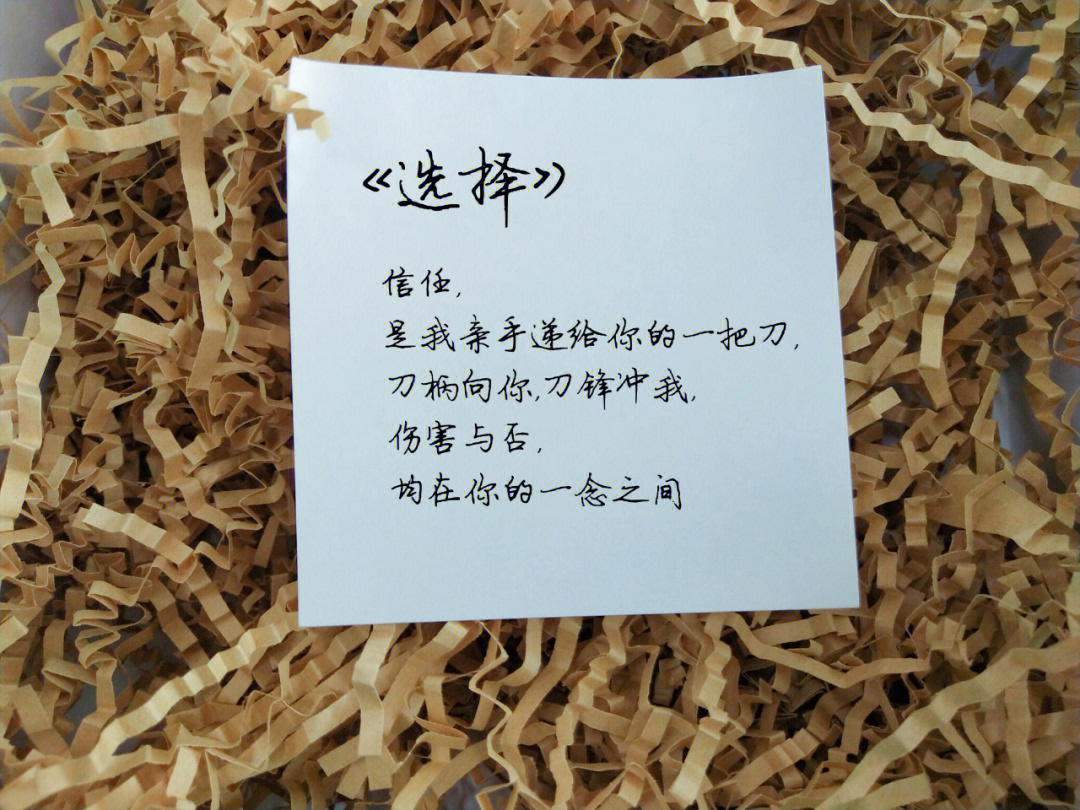 《选择》
信任,
是我亲手递给你的一把刀,
刀柄向你,刀锋冲我,
伤害与否,
均在你的一念之间